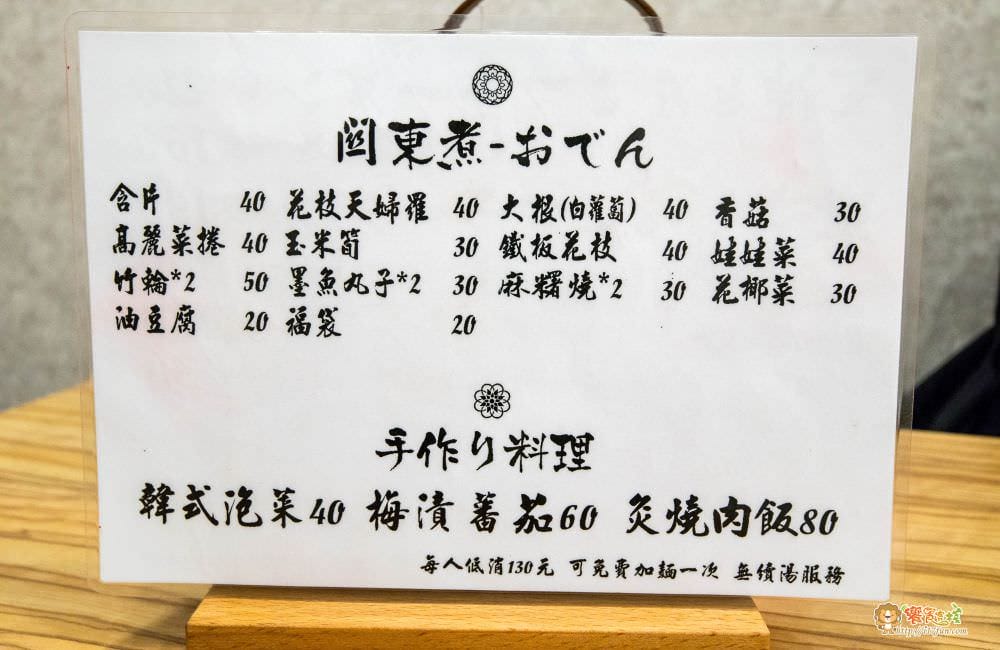 関東煮-おでん
含片 40 花枝天婦羅 40 大根(白蘿蔔) 40 香菇 30
高麗菜捲 40 玉米筍 30 鐵板花枝 40 娃娃菜 40
竹輪*2 50 墨魚丸子*2 30 麻糬燒*2 30 花椰菜 30
油豆腐 20 福袋 20
手作り料理
韓式泡菜40 梅漬蕃茄60 炙燒肉飯80
每人低消130元 可免費加麵一次 無續湯服務